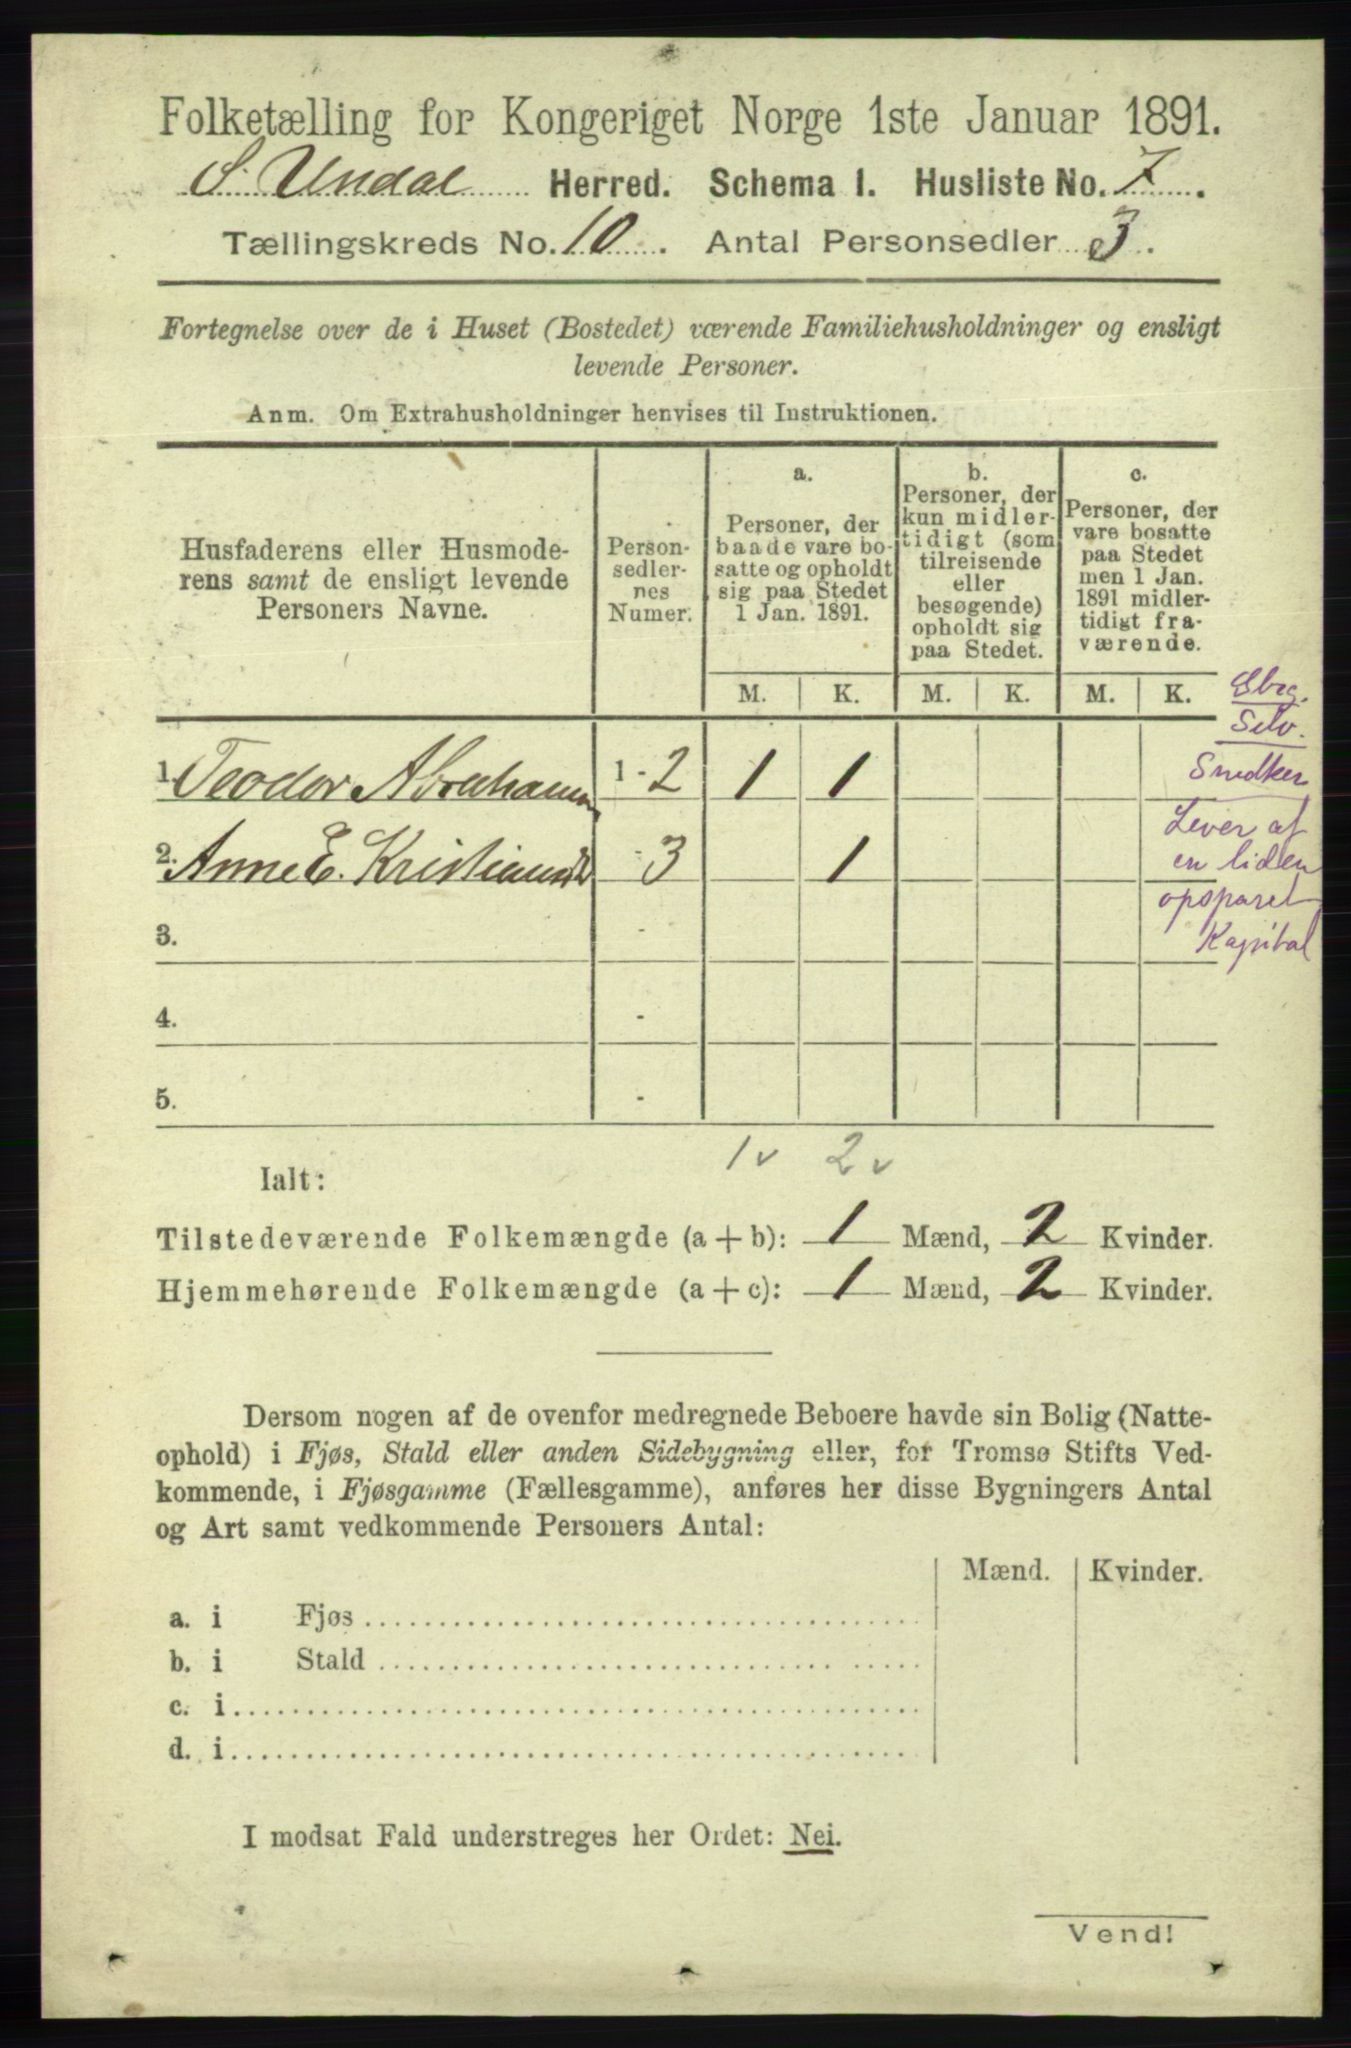 Folketælling for Kongeriget Norge 1ste Januar 1891.
S. Undal Herred. Schema 1. Husliste No. 7.
Tællingskreds No. 10. Antal Personsedler 3.
Fortegnelse over de i Huset (Bostedet) værende Familiehusholdninger og ensligt
levende Personer.
Anm. Om Extrahusholdninger henvises til Instruktionen.
Husfaderens eller Husmode-
rens samt de ensligt levende
Personers Navne.
Person-
sedler-
nes
Numer.
a.
Personer, der
baade vare bo-
satte og opholdt
sig paa Stedet
1 Jan. 1891.
b.
Personer, der
kun midler-
tidigt (som
tilreisende
eller
besøgende)
opholdt sig
paa Stedet.
c.
Personer, der
vare bosatte
paa Stedet
men 1 Jan.
1891 midler-
tidigt fra-
værende.
M. K. M. K. M. K.
Gbrg.
Selv.
1. Teodor Abrahamsen 1 - 2 1 1
Snedker
2. Anne E. Kristiansdtr - 3 1
Lever af
en liden
opsparet
Kapital
3. -
4. -
5. -
1 v 2 v
Ialt:
Tilstedeværende Folkemængde (a + b): 1 Mænd, 2 Kvinder.
Hjemmehørende Folkemængde (a + c): 1 Mænd, 2 Kvinder.
Dersom nogen af de ovenfor medregnede Beboere havde sin Bolig (Natte-
ophold) i Fjøs, Stald eller anden Sidebygning eller, for Tromsø Stifts Ved-
kommende, i Fjøsgamme (Fællesgamme), anføres her disse Bygningers Antal
og Art samt vedkommende Personers Antal:
Mænd. Kvinder.
a. i Fjøs
b. i Stald
c. i
d. i
I modsat Fald understreges her Ordet: Nei.
Vend!